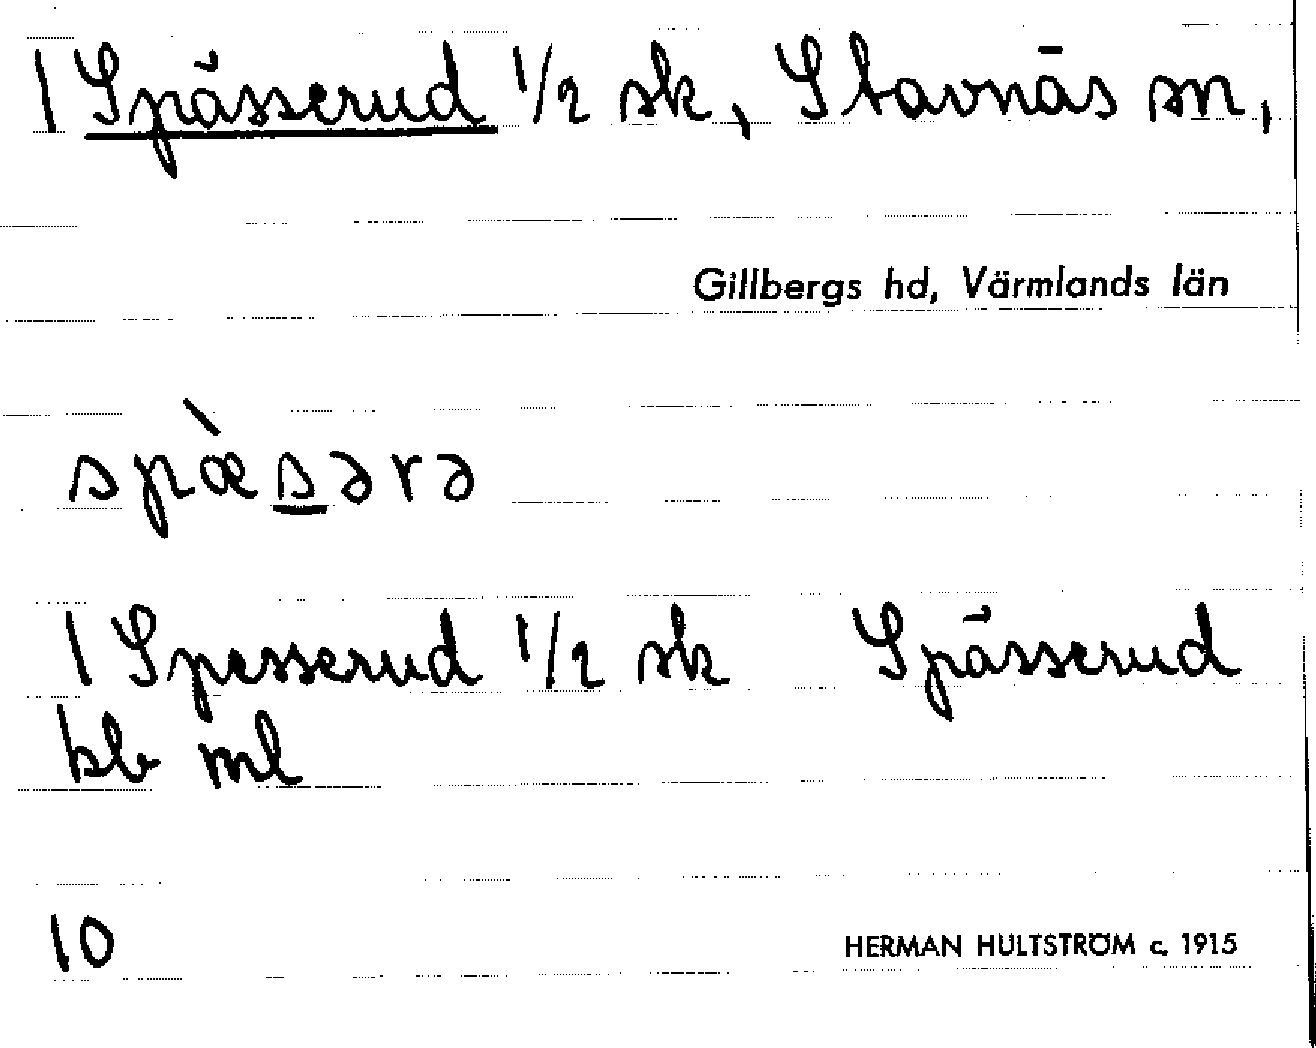 1 Spässerud 1/2 sk, Stavnäs sn,
Gillbergs hd, Värmlands län
spæ̀s̲ərə
1 Spesserud 1/2 sk Spässerud
kb ml
10
HERMAN HULTSTRÖM c. 1915